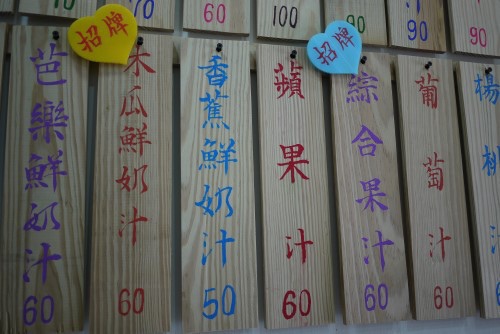 70
10
60
100
70
90
90
招牌
招牌
芭樂鮮奶汁
60
木瓜鮮奶汁
60
香蕉鮮奶汁
50
蘋果汁
60
綜合果汁
60
葡萄汁
60
楊桃